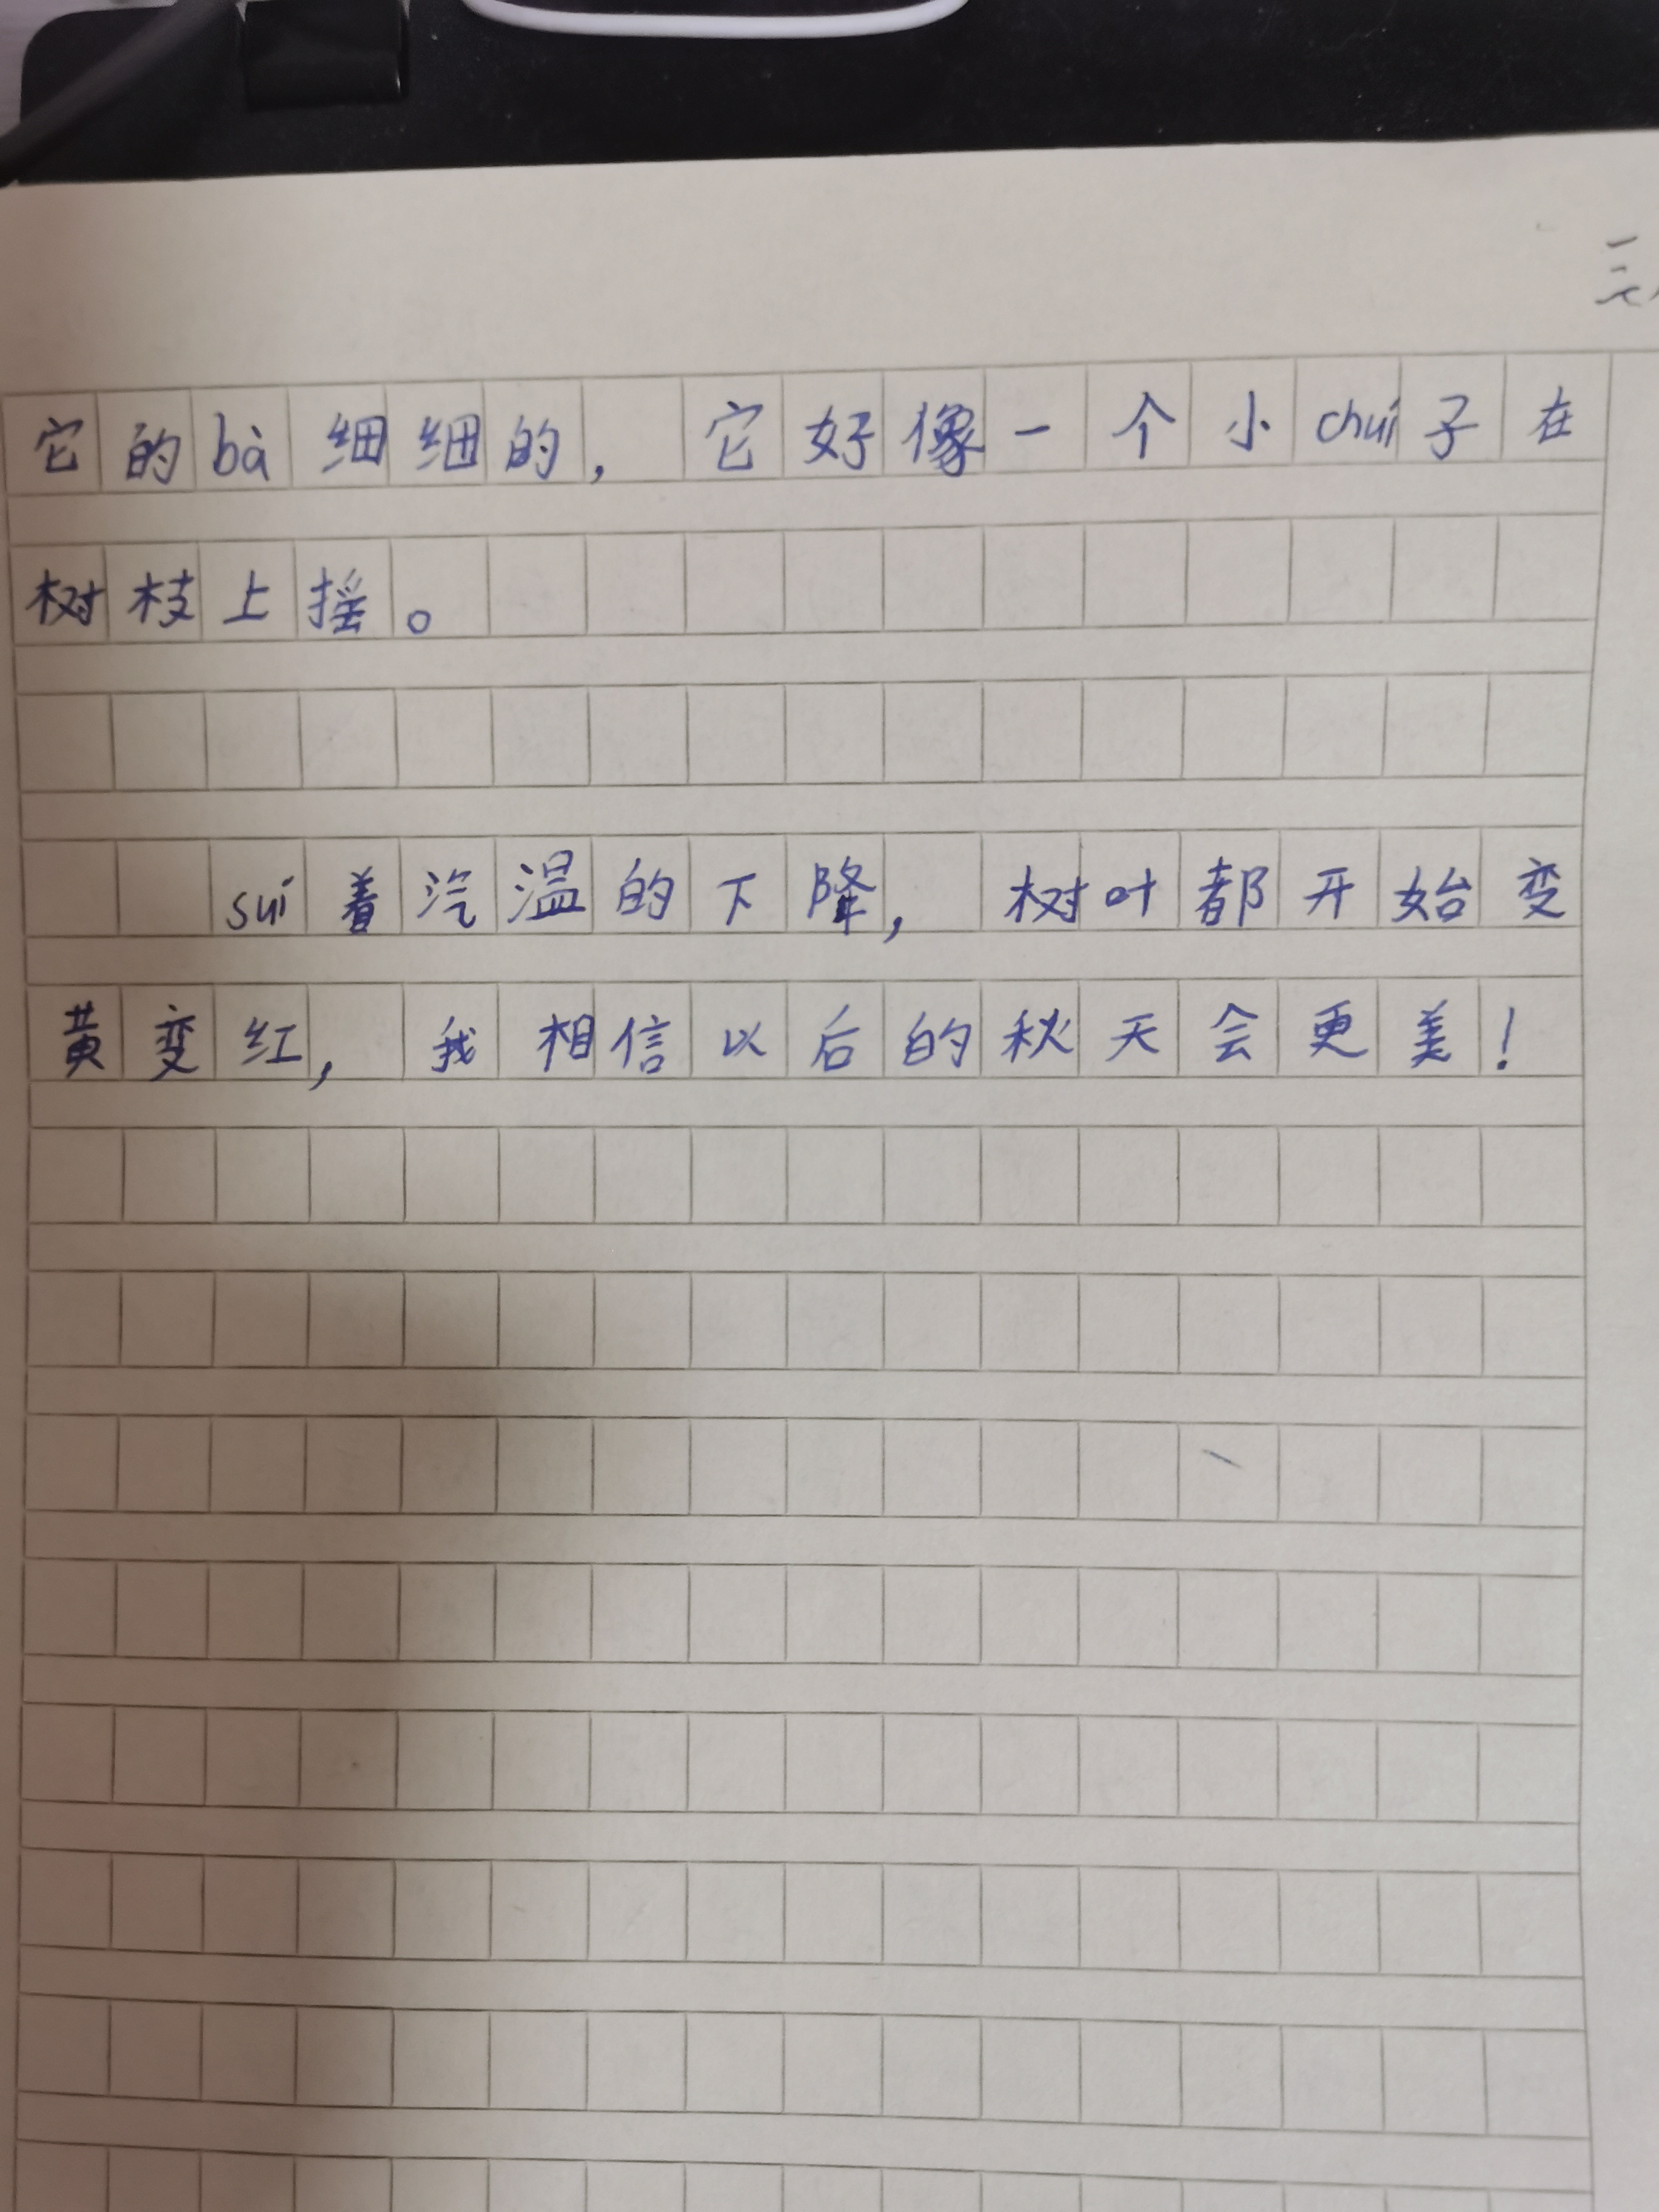 它的bà细细的，它好像一个小chuí子在
树枝上摇。
suí着汽温的下降，树叶都开始变
黄变红，我相信以后的秋天会更美！